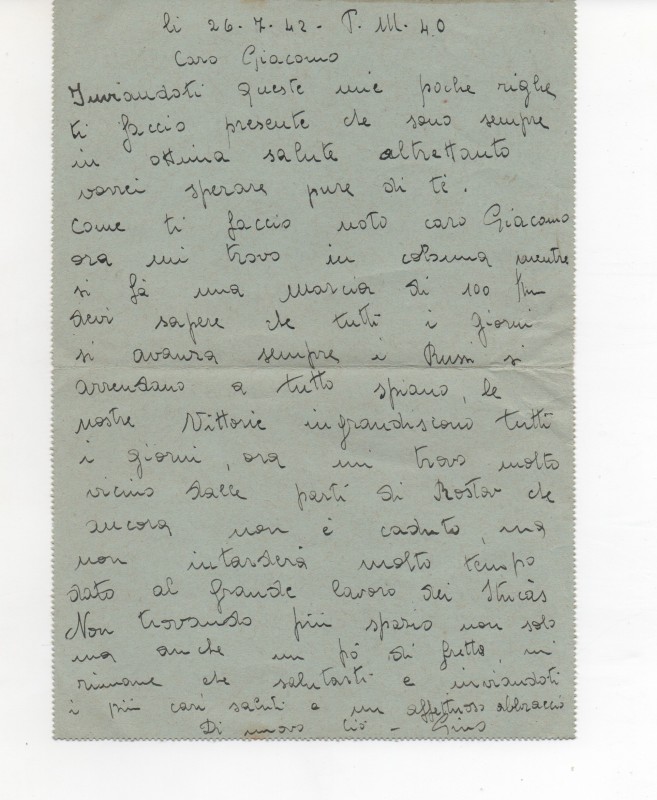 li 26-7-42- P.M.40
Caro Giacomo
Inviandoti queste mie poche righe
ti faccio presente che sono sempre
in ottima salute altrettanto
vorrei sperare pure di tè.
Come ti faccio noto caro Giacomo
ora mi trovo in colonna mentre
si fà una marcia di 100 Km
devi sapere che tutti i giorni
si avanza sempre i Russi si
arrendano a tutto spiano, le
nostre Vittorie ingrandiscono tutti
i giorni, ora mi trovo molto
vicino dalle parti di Rostov che
ancora non è caduto, ma
non intarderà molto tempo
dato al grande lavoro dei Stucàs
Non trovando più spazio non solo
ma anche un pò di fretta, mi
rimane che salutarti e inviandoti
i più cari saluti e un affettuoso abbraccio
Di nuovo ciò - Gino